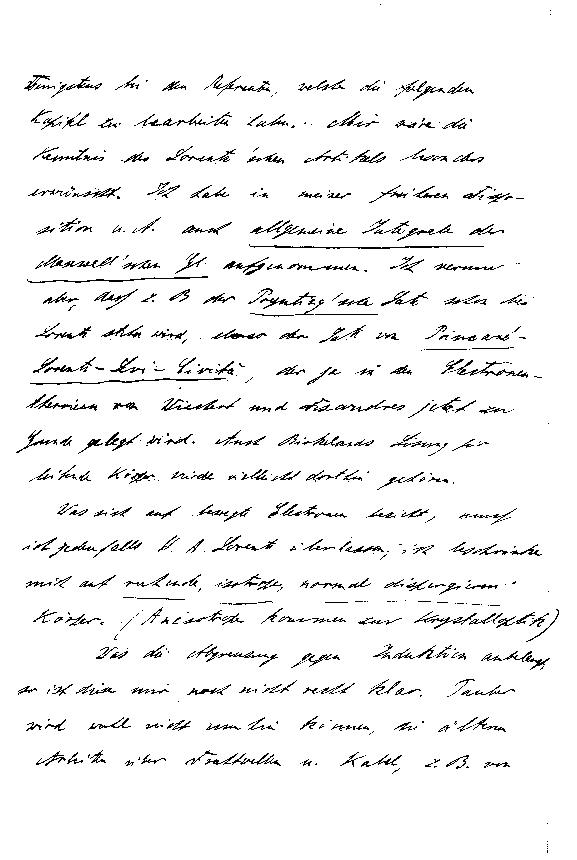 wenigstens bei den Referenten, welche die folgenden
Kapitel zu bearbeiten haben. Mir wäre die
Kenntnis des Lorentz'schen Artikels besonders
erwünscht. Ich habe in meiner früheren Dispo-
sition u. A. auch allgemeine Integrale der
Maxwell'schen Gl. aufgenommen. Ich vermute
aber, dass z. B der Poynting'sche Satz schon bei
Lorentz stehen wird, ebenso der Satz von Poincaré-
Lorentz-Levi-Civitá, der ja in den Electronen-
theorieen von Wiechert und Descoudres jetzt zu
Grunde gelegt wird. Auch Birkelands Lösung für
leitende Körper würde vielleicht dorthin gehören.
Was sich auf bewegte Electronen bezieht, muss
ich jedenfalls H. A. Lorentz überlassen; ich beschränke
mich auf ruhende, isotrope, normal dispergierende
Körper. (Anisotrope kommen zur Krystalloptik)
Was die Abgrenzung gegen Induktion anbelangt,
so ist diese mir noch nicht recht klar. Tauber
wird wohl nicht umhin können, die älteren
Arbeiten über Drahtwellen u. Kabel, z. B. von